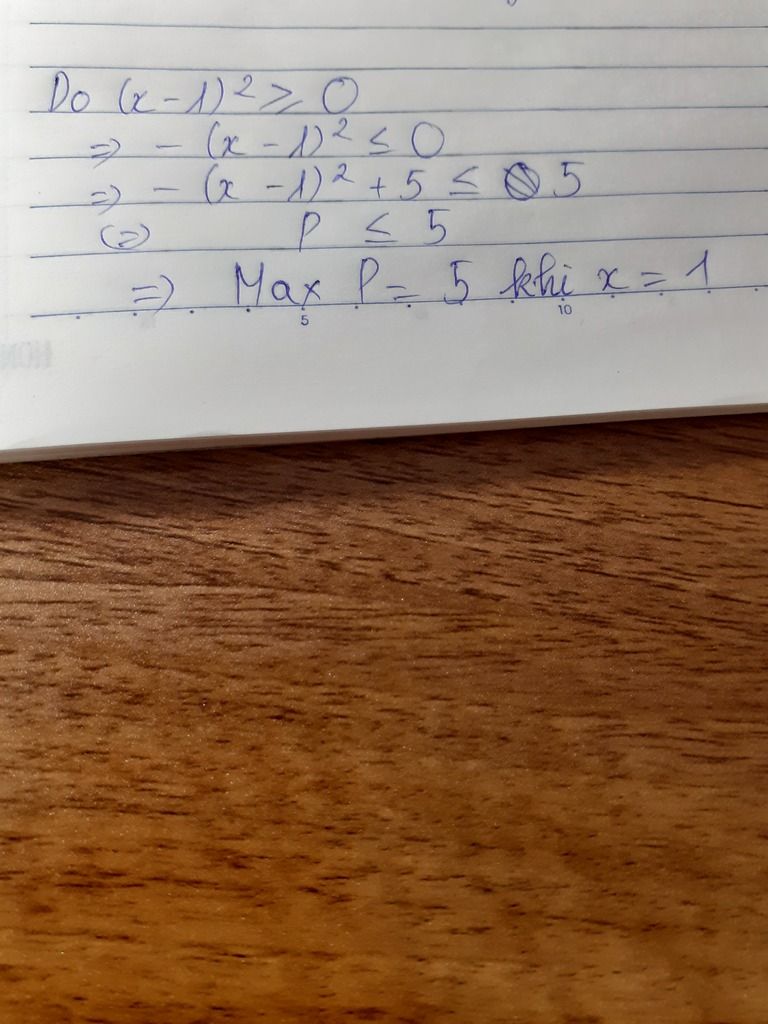 Do (x - 1)² ≥ 0
=> - (x - 1)² ≤ 0
=> - (x - 1)² + 5 ≤ 5
(=) P ≤ 5
=> Max P = 5 khi x = 1
5 10